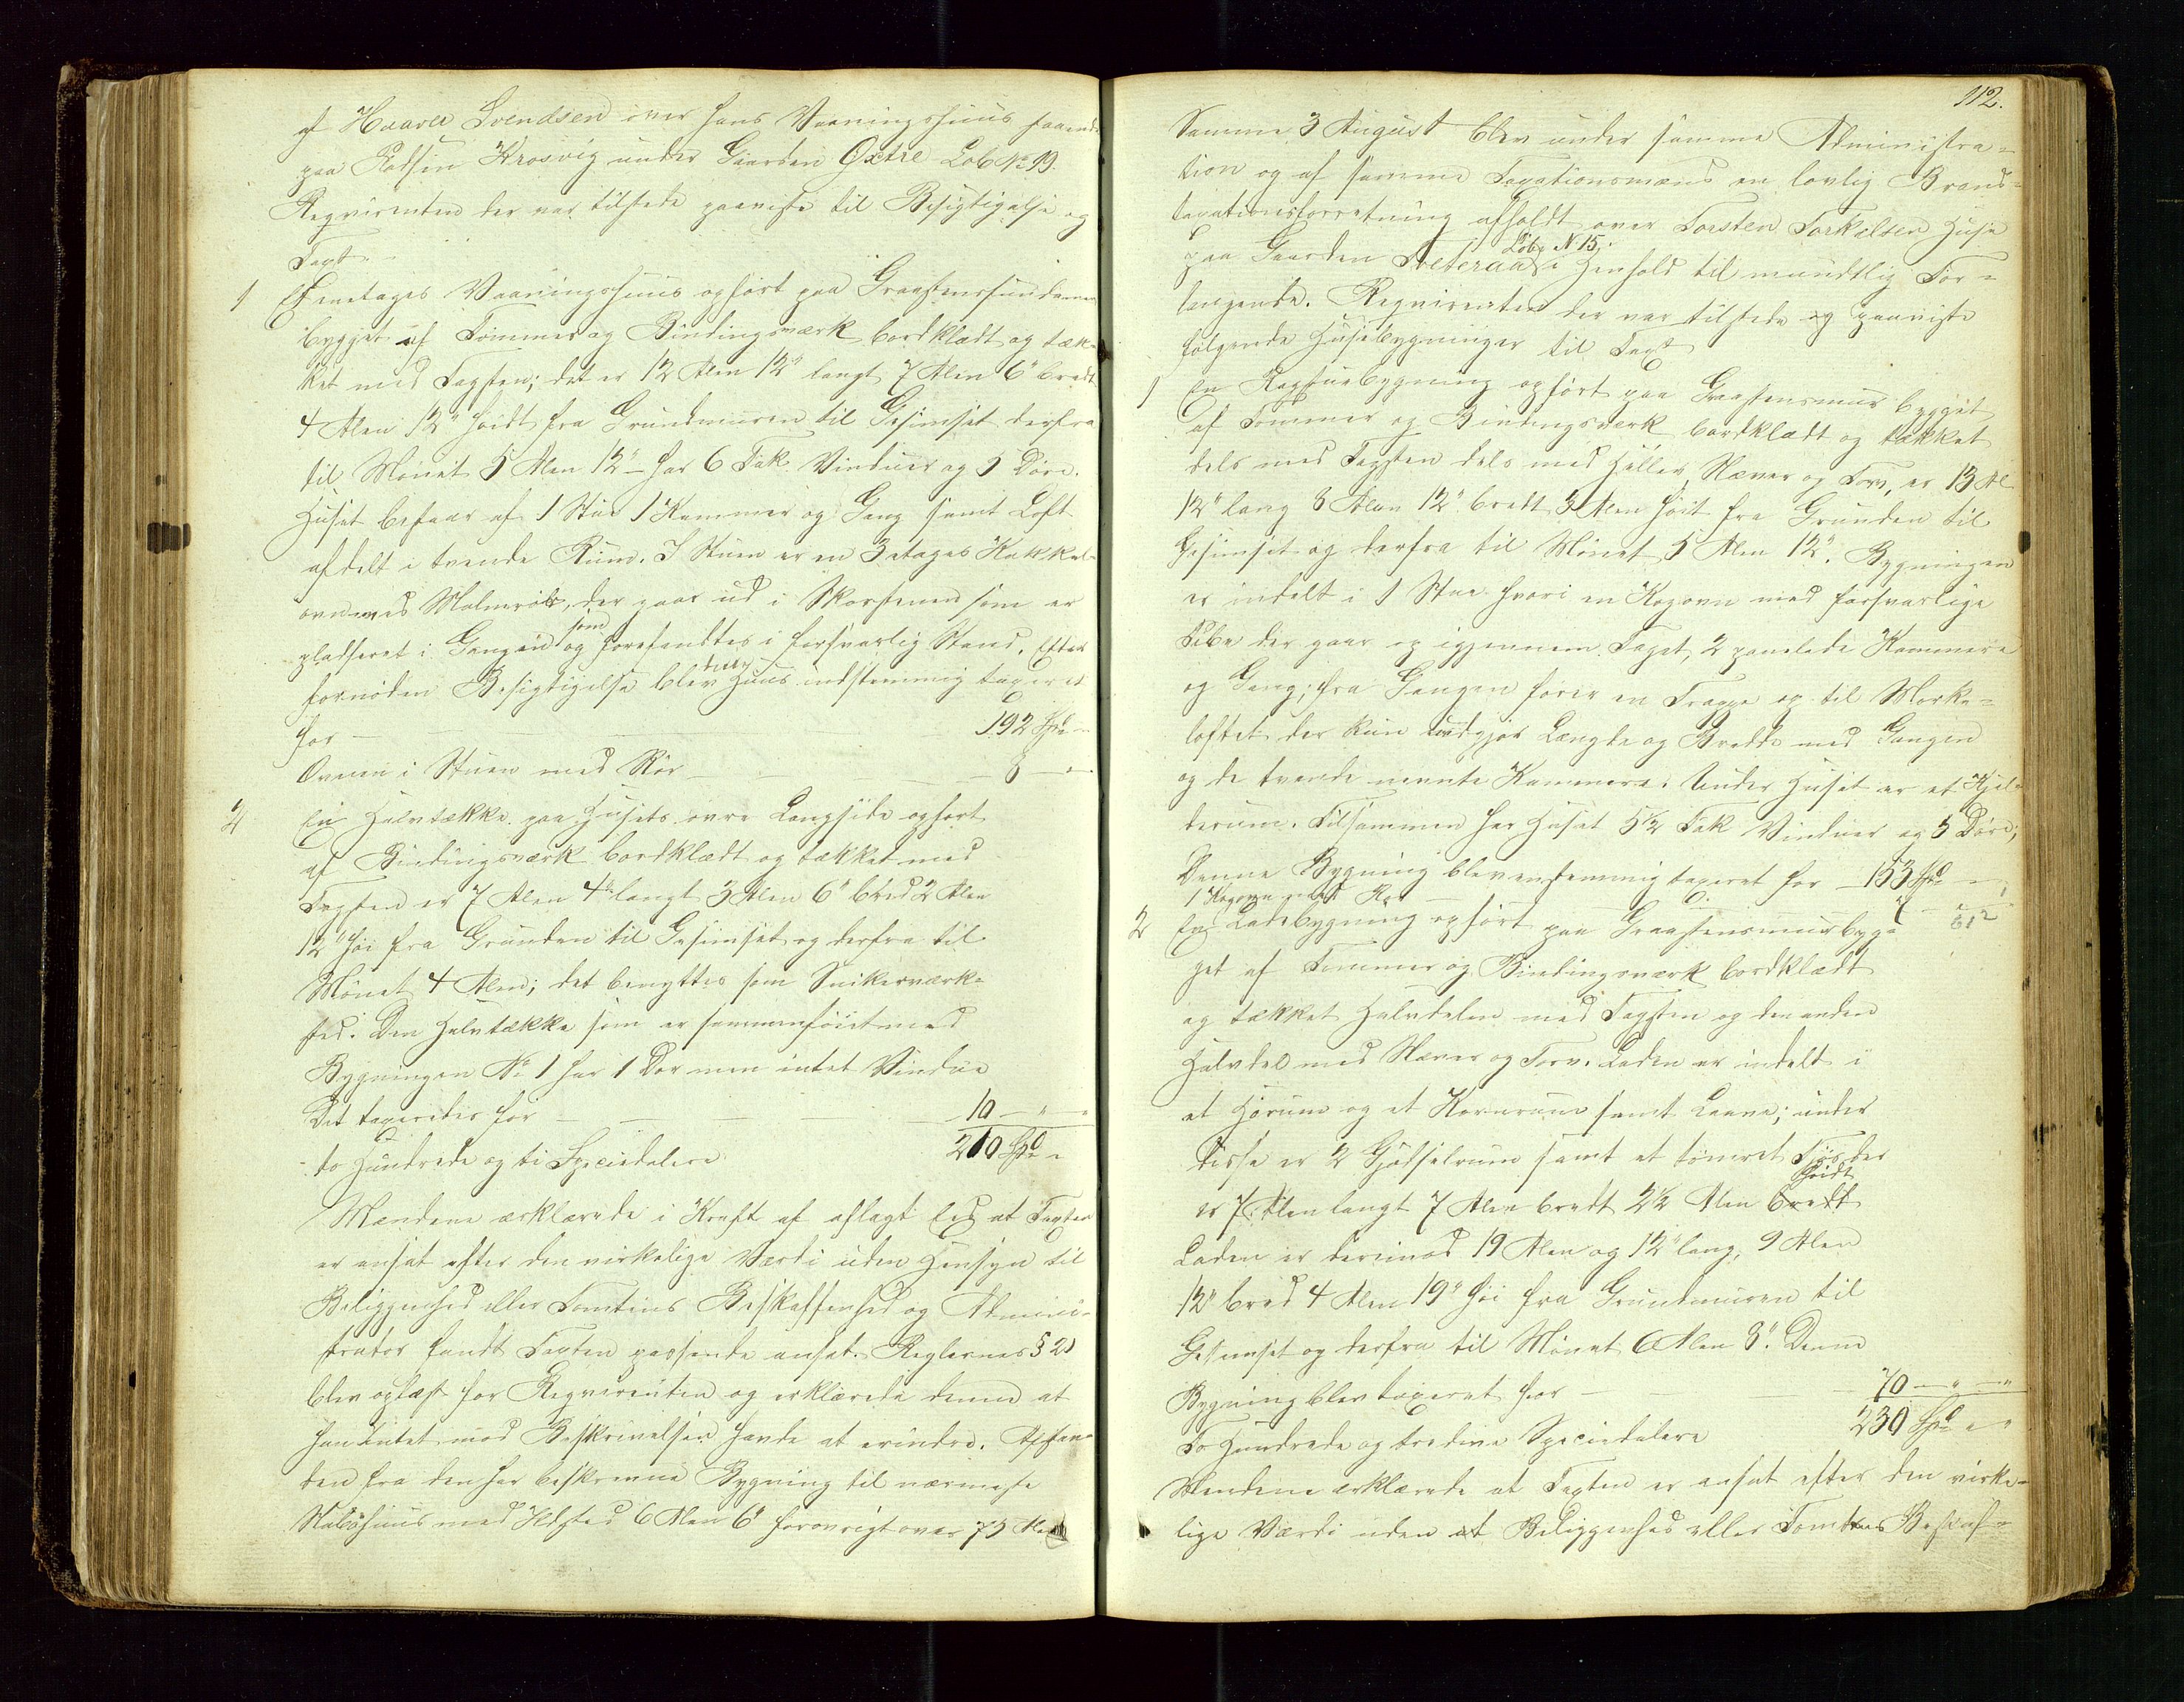 af Haaver Svendsen over hans Vaaningshuus staaende
paa Pladsen Krosvig under Gaarden Oxtre Lob No 19.
Reqvirenten der var tilstede paaviste til Besigtigelse og
Taxt.
1 Et enetages Vaaningshuus opført paa Graasteens
bygget af Tømmer og Bindingsværk bordklædt og tæk-
ket med Tagsten; det er 12 Alen 12" langt 7 Alen 6" bredt
4 Alen 12" høidt fra Grundmuren til Gesimset derfra
til Mønet 5 Alen 12" – har 6 Fak Vinduer og 5 Døre.
Huset bestaar af 1 Stue 1 Kammer og Gang samt Loft
afdelt i tvende Rum. I Stuen er en 3 etages Kakkel-
ovn med Malmrør, der gaar ud i Skorstenen som er
pladseret i Gangen og som forefandtes i forsvarlig Stand. Efter
fornøden Besigtigelse blev dette Huus indstemmig taxeret
for – 192 Spd –
Ovnen i Stuen med Rør – 8 – "
2 En Halvtække paa Husets øvre Langside opført
af Bindingsværk bordklædt og tækket med
Tagsten er 7 Alen 4" langt 3 Alen 6" bred 2 Alen
12" høi fra Grunden til Gesimset og derfra til
Mønet 4 Alen; det benyttes som Snikerværk-
sted. Den Halvtække som er sammenføiet med
Bygningen No 1 har 1 Dør men intet Vindue
Det taxeredes for – 10 – " – "
to Hundrede og ti Speciedalere 210 Spd "
Mændene erklærede i Kraft af aflagt Eed at Taxten
er ansat efter den virkelige Værdi uden Hensyn til
Beliggenhed eller Tomtens Beskaffenhed og Admini-
strator fandt Taxten passende ansat. Reglernes § 21
blev oplæst for Reqvirenten og erklærede denne at
han Intet mod Beskrivelsen havde at erindre. Afstan-
den fra den her beskrevne Bygning til nærmeste
Nabohuus med Ildsted 6 Alen 6" forøvrigt over 75 Alen
112.
Samme 3 August blev under samme Administra-
tion og af samme Taxationsmænd en lovlig Brand-
taxationsforretning afholdt over Torsten Torkelsen Huse
paa Gaarden Tveteraa Løbe N 15. i Henhold til mundtlig For-
langende. Reqvirenten der var tilstede og paaviste
følgende Husebygninger til Taxt
1 En Røgstuebygning opført paa Graastensmur bygget
af Tømmer og Bindingsværk bordklædt og tækket
dels med Tagsten dels med Heller, Næver og Torv, er 13 Al
12" lang 8 Alen 12" bredt 3 Alen høit fra Grunden til
Gesimset og derfra til Mønet 5 Alen 12". Bygningen
er indelt i 1 Stue hvori en Kogovn med forsvarlige
Pibe der gaar op igjennem Taget, 2 panelede Kammere
og Gang; fra Gangen fører en Trappe op til Mørke-
loftet der kun udgjør Længde og Bredde med Gangen
og de tvende nævnte Kammere. Under Huset er et Kjel-
derum. Tilsammen har Huset 5½ Fak Vinduer og 5 Døre;
Denne Bygning blev enstemmig taxeret for – 153 Spd – "
1 Kogovn med Rør – 7 – "
2 En Ladebygning opført paa Graastensmur byg-
get af Tømmer og Bindingsværk bordklædt
og tækket Halvdelen med Tagsten og den anden
Halvdel med Næver og Torv. Laden er indelt i
et Hørum og et Kornrum samt Laave; under
disse er 2 Gjødselrum samt et tømret Fjøs der
er 7 Alen langt 7 Alen bredt 2½ Alen bredt høidt
Laden er derimod 19 Alen og 12" lang, 9 Alen
12" bred 4 Alen 19" høi fra Grundmuren til
Gesimset og derfra til Mønet 6 Alen 8". Denne
Bygning blev taxeret for – 70 – " – "
To Hundrede og tredive Speciedalere 230 Spd " "
Mændene erklærede at Taxten er ansat efter den virke-
lige Værdi uden at Beliggenhed eller Tomtens Beskaf-